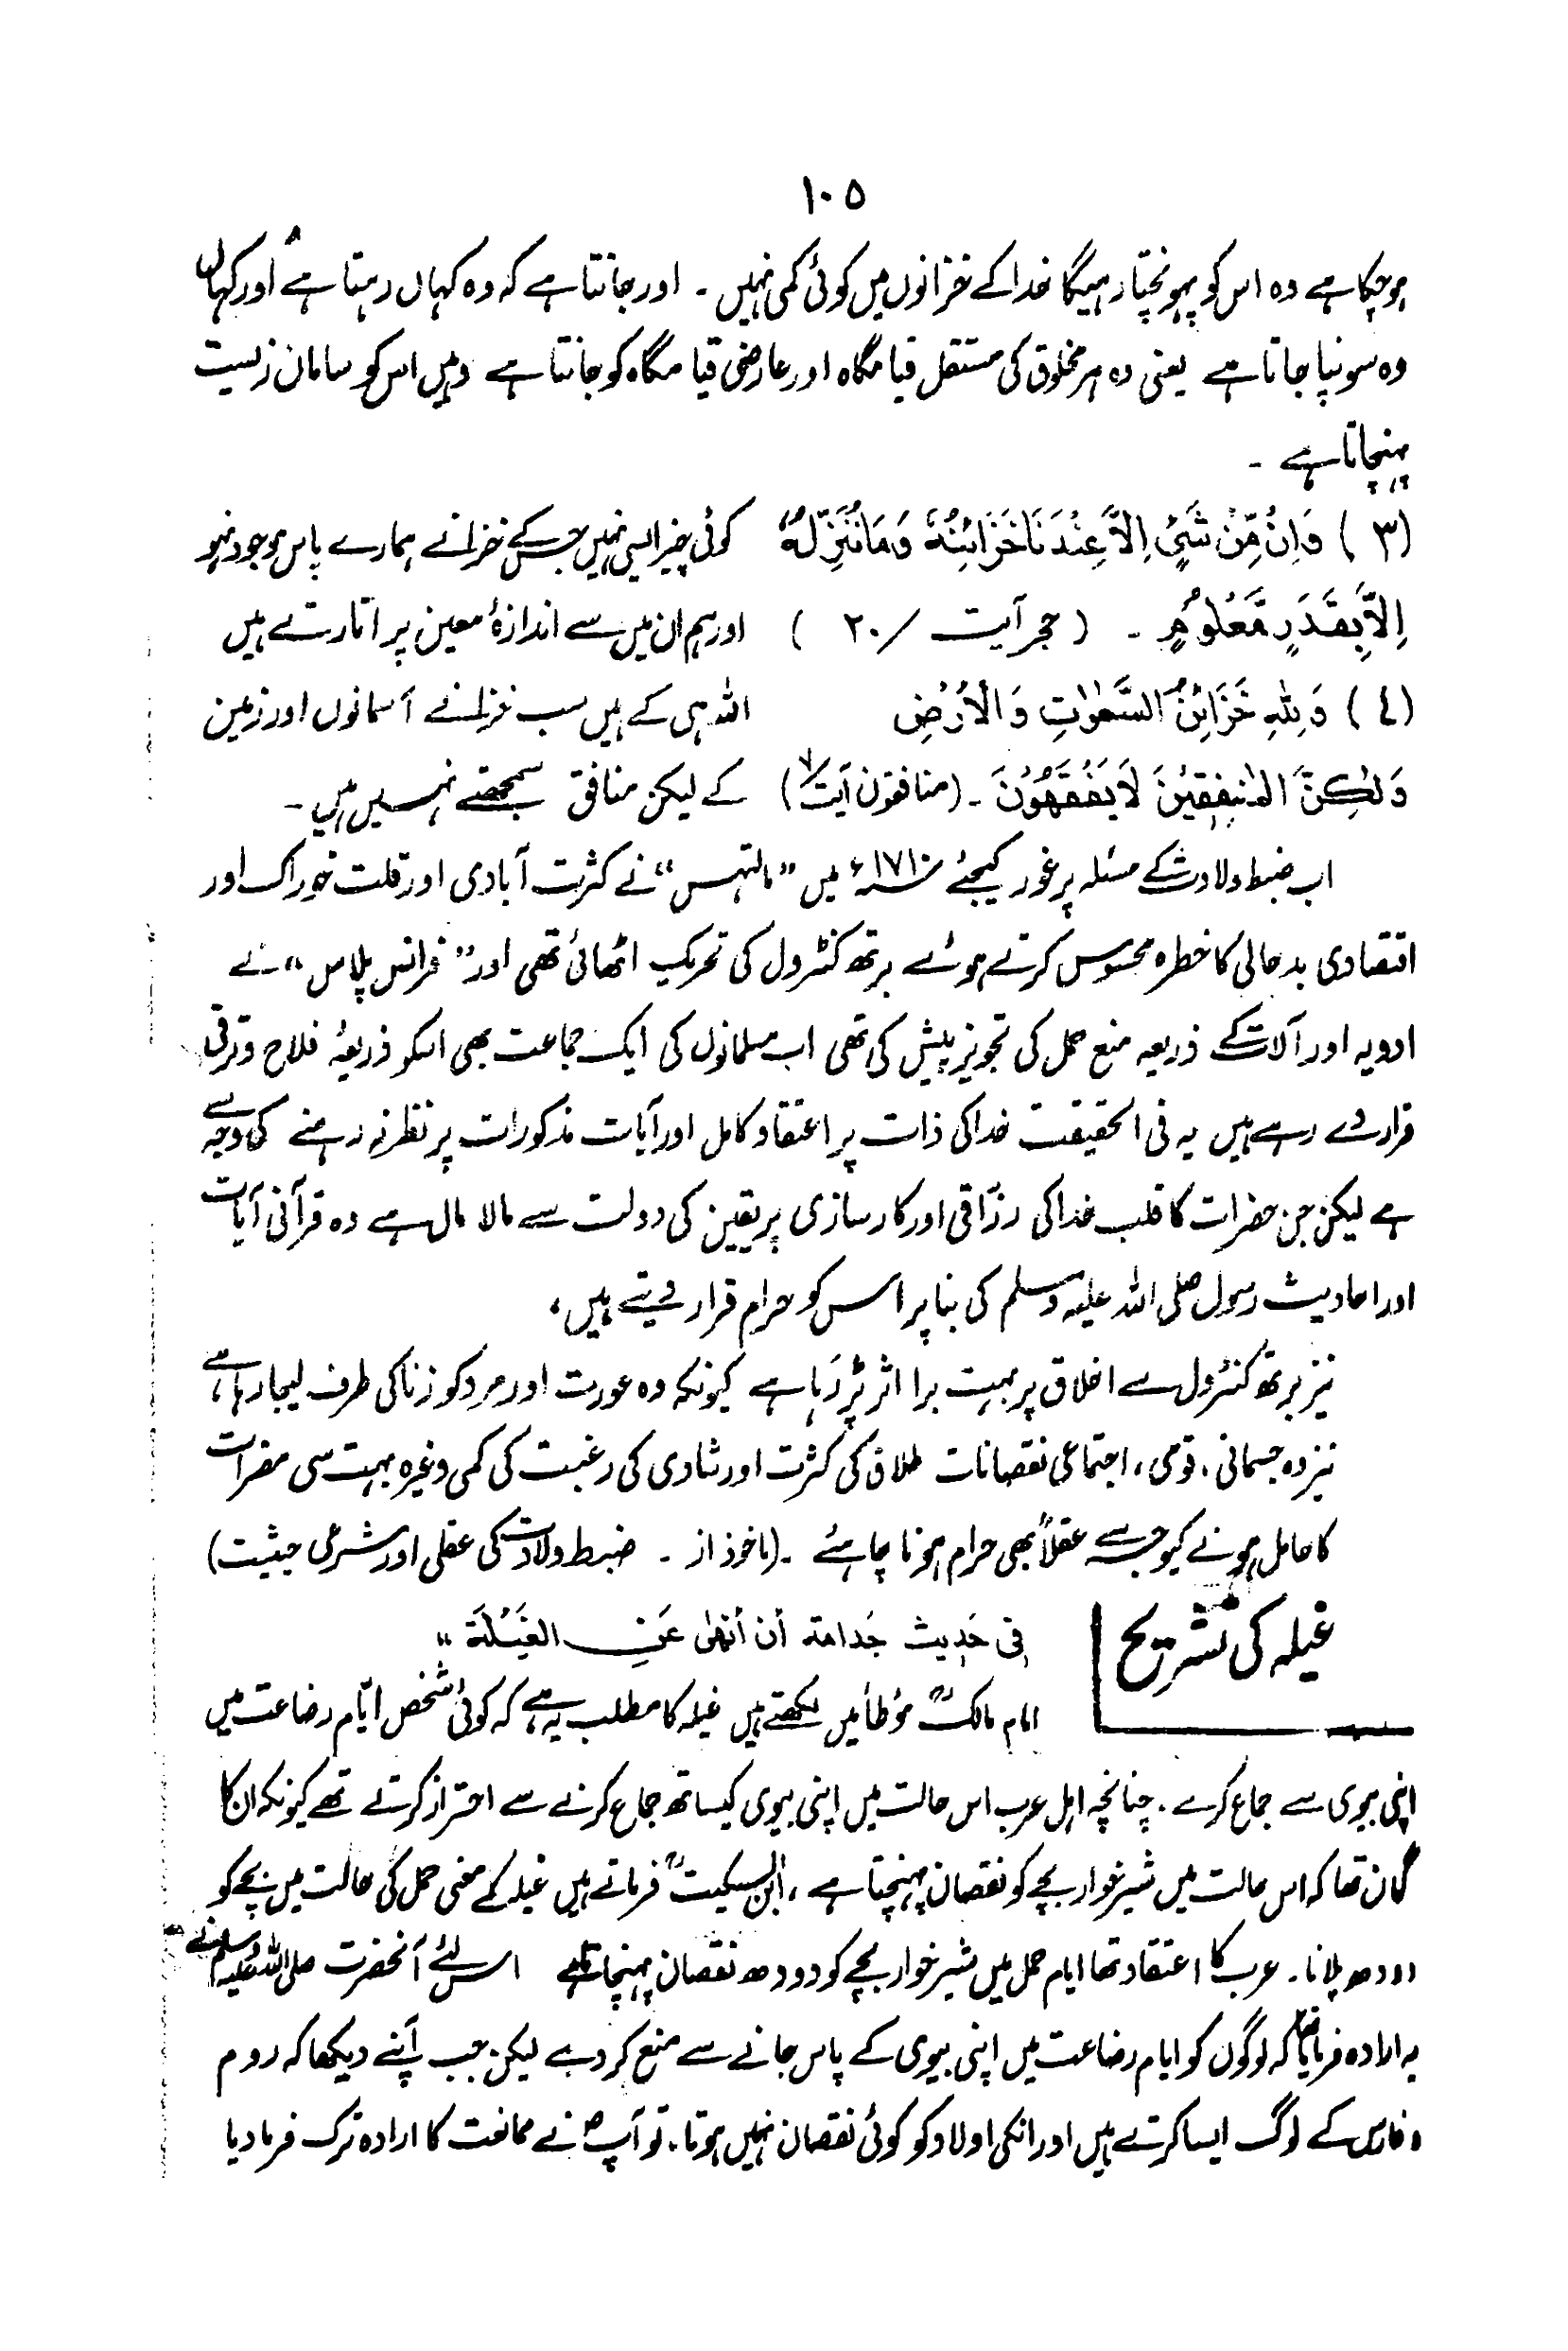 ۱۰۵
ہوچکا ہے وہ اس کو پہونچتا رہیگا خدا کے خزانوں میں کوئی کمی نہیں ۔ اور جانتا ہے کہ وہ کہاں رہتا ہے اور کہاں
وہ سونپا جاتا ہے یعنی وہ ہر مخلوق کی مستقل قیامگاہ اور عارضی قیامگاہ کو جانتا ہے وہیں اس کو سامان زیست
پہنچاتا ہے ۔
(۳) وَاِنْ مِّنْ شَیْئٍ اِلَّا عِنْدَنَا خَزَائِنُهٗ وَمَا نُنَزِّلُهٗ کوئی چیز ایسی نہیں جس کے خزانے ہمارے پاس موجود نہو
اِلَّا بِقَدَرٍ مَّعْلُوْمٍ ۔ (حجر آیت /۲۰) اور ہم ان میں سے اندازۂ معین پر اتارتے ہیں
(٤) وَلِلّٰهِ خَزَائِنُ السَّمٰوٰتِ وَالْاَرْضِ اللہ ہی کے ہیں سب خزانے آسمانوں اور زمین
وَلٰكِنَّ الْمُنٰفِقِيْنَ لَا يَفْقَهُوْنَ ۔ (منافقون آیت /۷) کے لیکن منافق سمجھتے نہیں ہیں ۔
اب ضبط ولادت کے مسئلہ پر غور کیجئے ۱۷۱۰ء میں "مالتھس" نے کثرت آبادی اور قلت خوراک اور
اقتصادی بدحالی کا خطرہ محسوس کرتے ہوئے برتھ کنٹرول کی تحریک اٹھائی تھی اور "فرانس پلاس" نے
ادویہ اور آلات کے ذریعہ منع حمل کی تجویز پیش کی تھی اب مسلمانوں کی ایک جماعت بھی اسکو ذریعۂ فلاح وترقی
قرار دے رہے ہیں یہ فی الحقیقت خدا کی ذات پر اعتقاد کامل اور آیات مذکورات پر نظر نہ رہنے کی وجہ سے
ہے لیکن جن حضرات کا قلب خدا کی رزّاقی اور کارسازی پر یقین کی دولت سے مالا مال ہے وہ قرآنی آیات
اور احادیث رسول صلی اللہ علیہ وسلم کی بنا پر اس کو حرام قرار دیتے ہیں ،
نیز برتھ کنٹرول سے اخلاق پر بہت برا اثر پڑ رہا ہے کیونکہ وہ عورت اور مرد کو زنا کی طرف لیجا رہا ہے ،
نیز وہ جسمانی ، قومی ، اجتماعی نقصانات طلاق کی کثرت اور شادی کی رغبت کی کمی وغیرہ بہت سی مضرات
کا حامل ہونے کیوجہ سے عقلاً بھی حرام ہونا چاہئے ۔ (ماخوذ از ۔ ضبط ولادت کی عقلی اور شرعی حیثیت)
غیلہ کی تشریح
فی حَدِیث جُدامة أن أنهٰى عَنِ الغَيْلَة "
امام مالکؒ مؤطا میں لکھتے ہیں غیلہ کا مطلب یہ ہے کہ کوئی شخص ایّام رضاعت میں
اپنی بیوی سے جماع کرے ، چنانچہ اہل عرب اس حالت میں اپنی بیوی کیساتھ جماع کرنے سے احتراز کرتے تھے کیونکہ ان کا
گمان تھا کہ اس حالت میں شیرخوار بچے کو نقصان پہنچتا ہے ، ابن السکیتؒ فرماتے ہیں غیلہ کے معنی حمل کی حالت میں بچے کو
دودھ پلانا ۔ عرب کا اعتقاد تھا ایام حمل میں شیرخوار بچے کو دودھ نقصان پہنچاتا ہے اس لئے آنحضرت صلی اللہ علیہ وسلم نے
یہ ارادہ فرمایا تھا کہ لوگوں کو ایام رضاعت میں اپنی بیوی کے پاس جانے سے منع کر دے لیکن جب آپنے دیکھا کہ روم
وفارس کے لوگ ایسا کرتے ہیں اور انکی اولاد کو کوئی نقصان نہیں ہوتا ، تو آپؐ نے ممانعت کا ارادہ ترک فرما دیا